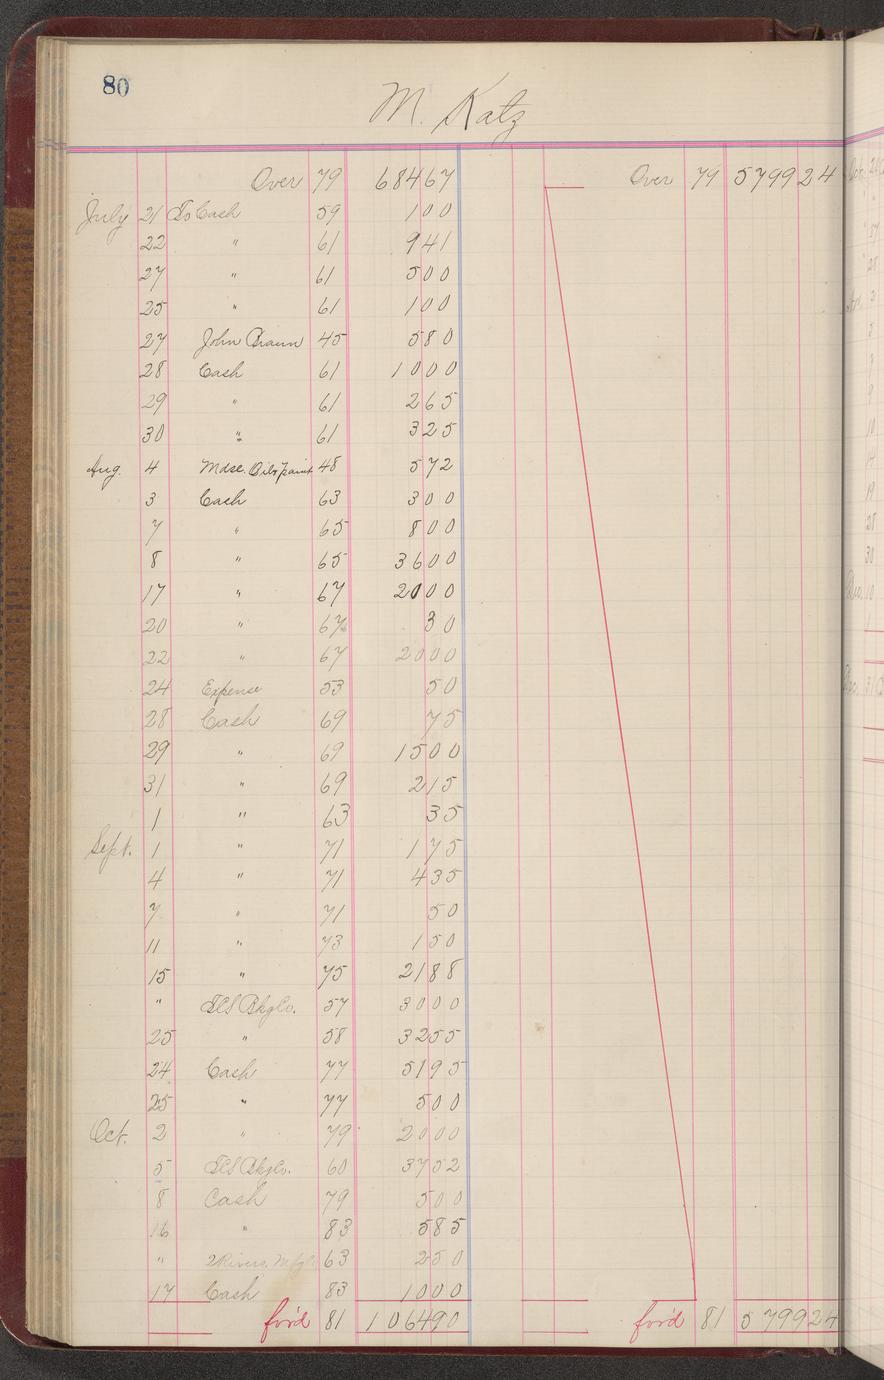 80
M. Katz
Over 79 68467 Over 79 579924
July 21 To Cash 59 100
22 " 61 941
27 " 61 500
25 " 61 100
27 John Braun 45 580
28 Cash 61 1000
29 " 61 265
30 " 61 325
Aug. 4 Mdse. Oil & paint 48 572
3 Cash 63 300
7 " 65 800
8 " 65 3600
17 " 67 2000
20 " 67 30
22 " 67 2000
24 Expense 53 50
28 Cash 69 75
29 " 69 1500
31 " 69 215
1 " 63 35
Sept. 1 " 71 175
4 " 71 435
7 " 71 50
11 " 73 150
15 " 75 2188
" Bkg Co. 57 3000
25 " 58 3255
24 Cash 77 5195
25 " 77 500
Oct. 2 " 79 2000
5 Bkg Co. 60 3752
8 Cash 79 500
16 " 83 585
" 2 Rivers Mfg 63 250
17 Cash 83 1000
for'd 81 106490 for'd 81 579924